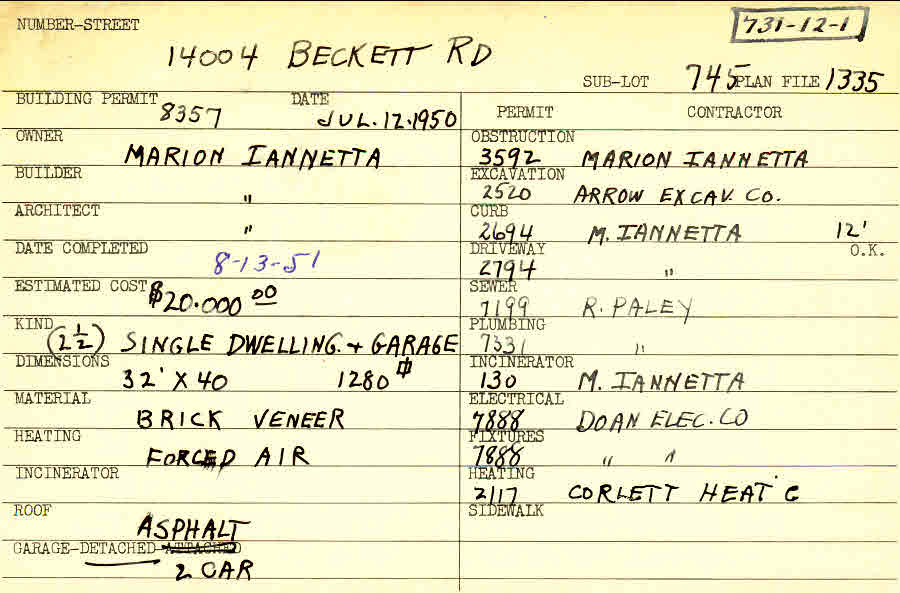 NUMBER-STREET
731-12-1
14004 BECKETT RD
SUB-LOT 745 PLAN FILE 1335
BUILDING PERMIT 8357 DATE JUL.12.1950
OWNER MARION IANNETTA
BUILDER "
ARCHITECT "
DATE COMPLETED 8-13-51
ESTIMATED COST $20.000 00
KIND (1 1/2) SINGLE DWELLING. + GARAGE
DIMENSIONS 32' X 40 1280
MATERIAL BRICK VENEER
HEATING FORCED AIR
INCINERATOR
ROOF ASPHALT
GARAGE-DETACHED-ATTACHED
2 CAR
PERMIT CONTRACTOR
OBSTRUCTION
3592 MARION IANNETTA
EXCAVATION
2520 ARROW EXCAV. CO.
CURB
2694 M. IANNETTA 12'
DRIVEWAY O.K.
2794 "
SEWER
7199 R. PALEY
PLUMBING
7331 "
INCINERATOR
130 M. IANNETTA
ELECTRICAL
7888 DOAN ELEC. CO
FIXTURES
7888 " "
HEATING
2117 CORLETT HEAT'G
SIDEWALK